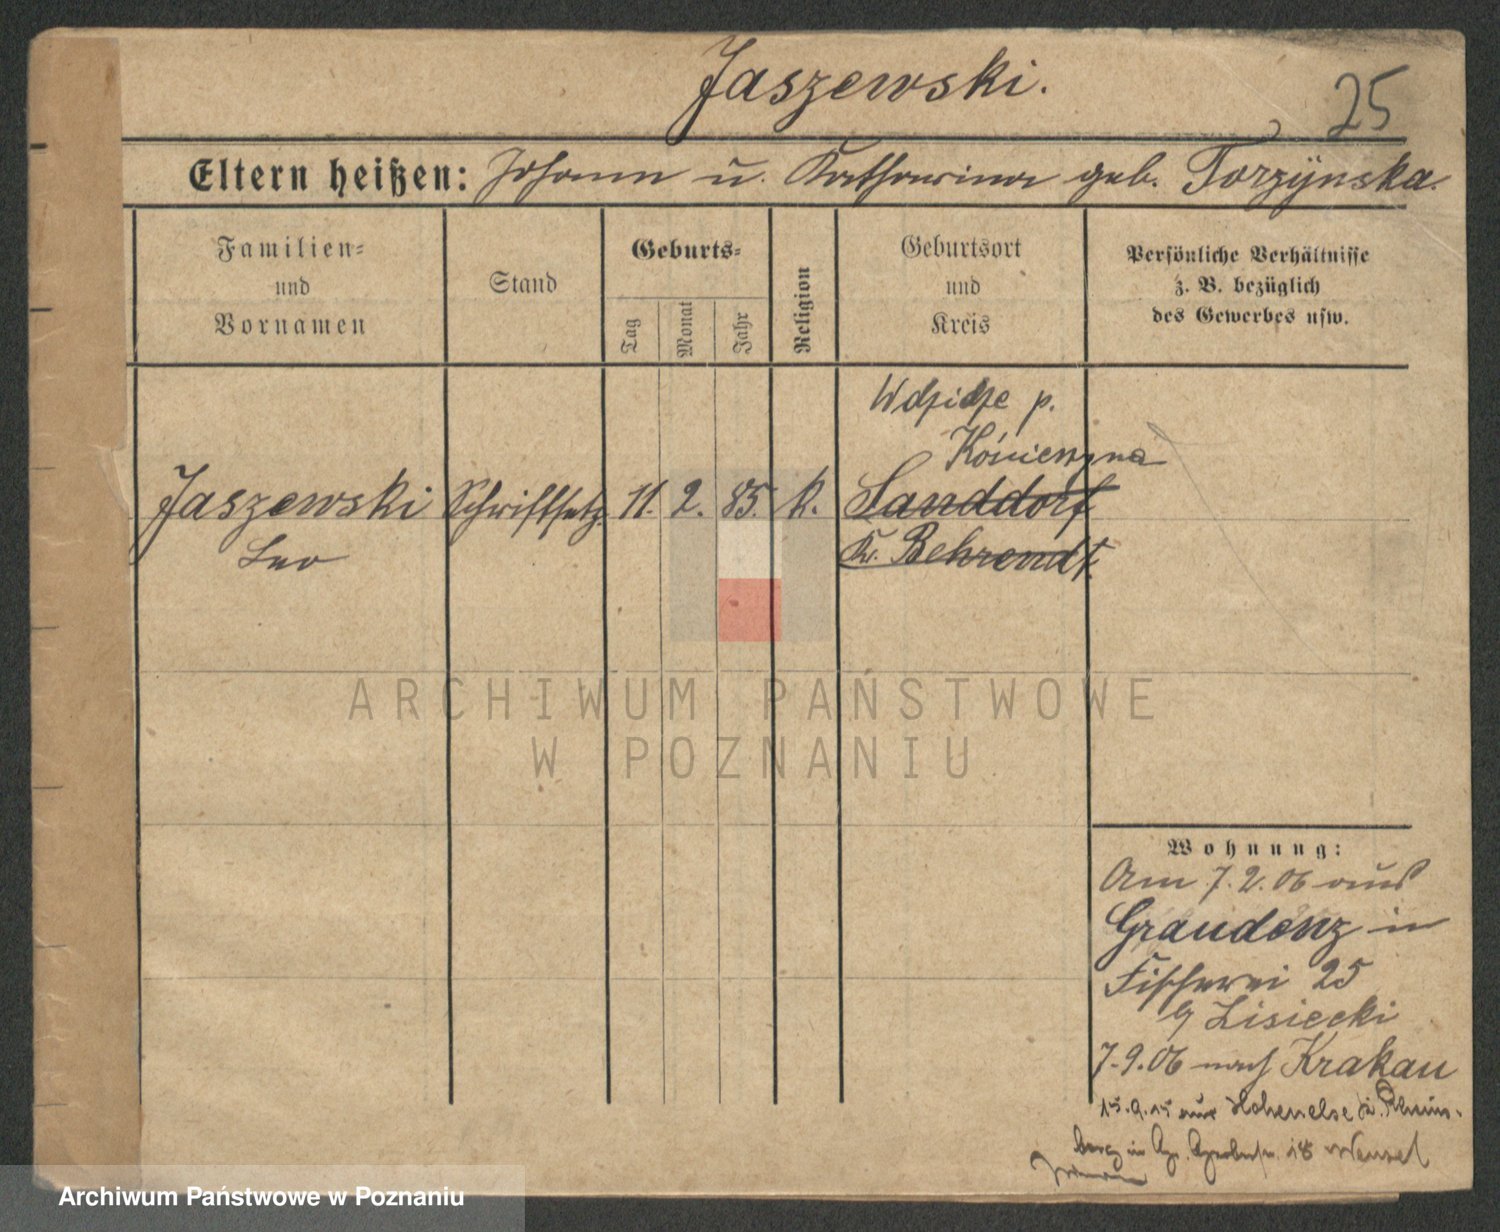 Jaszewski.
25
Eltern heißen: Johann u. Katharina geb. Torzynska.
Familien-
und
Vornamen
Stand
Geburts-
Tag
Monat
Jahr
Religion
Geburtsort
und
Kreis
Persönliche Verhältnisse
z. B. bezüglich
des Gewerbes usw.
Wdzidze p.
Konieczyna
Jaszewski Schriftsetz. 11. 2. 85. k. Sanddorf
Leo Kr. Behrendt.
ARCHIWUM PAŃSTWOWE
W POZNANIU
Wohnung:
Am 7.2.06 aus
Graudenz in
Fischerei 25
Lisiecki
7.9.06 nach Krakau
15.9.15 aus Hohenelse
in 18 Wenzel
Archiwum Państwowe w Poznaniu